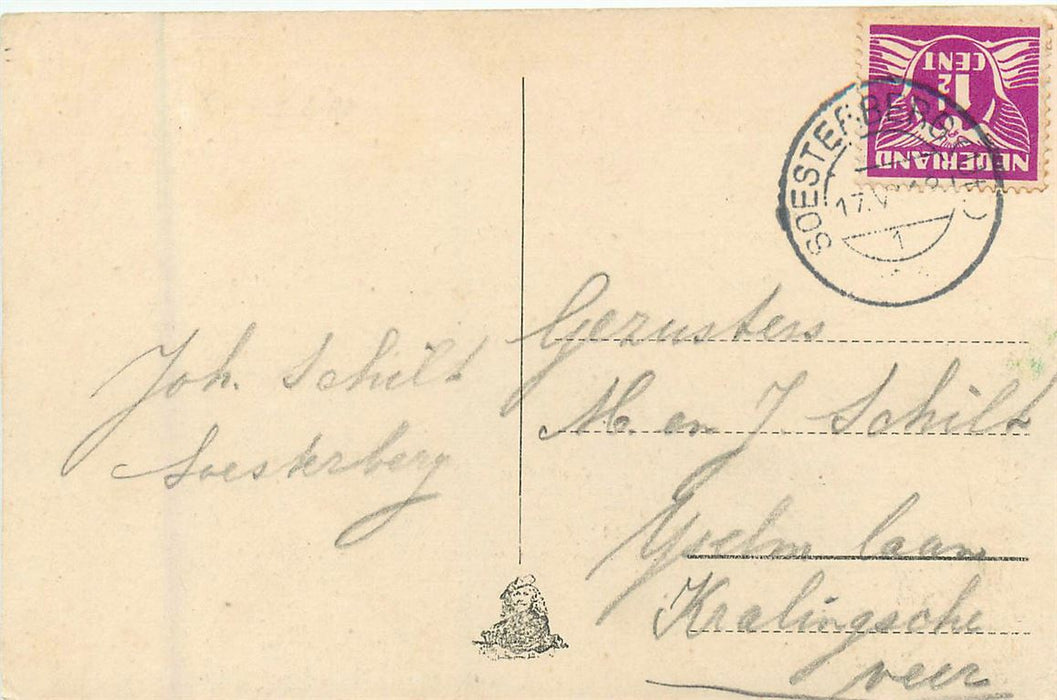 NEDERLAND
1½
CENT
SOESTERBERG
17.V
1
Joh. Schilt
Soesterberg
Gezusters
M. en J. Schilt
laan
Kralingsche
veer